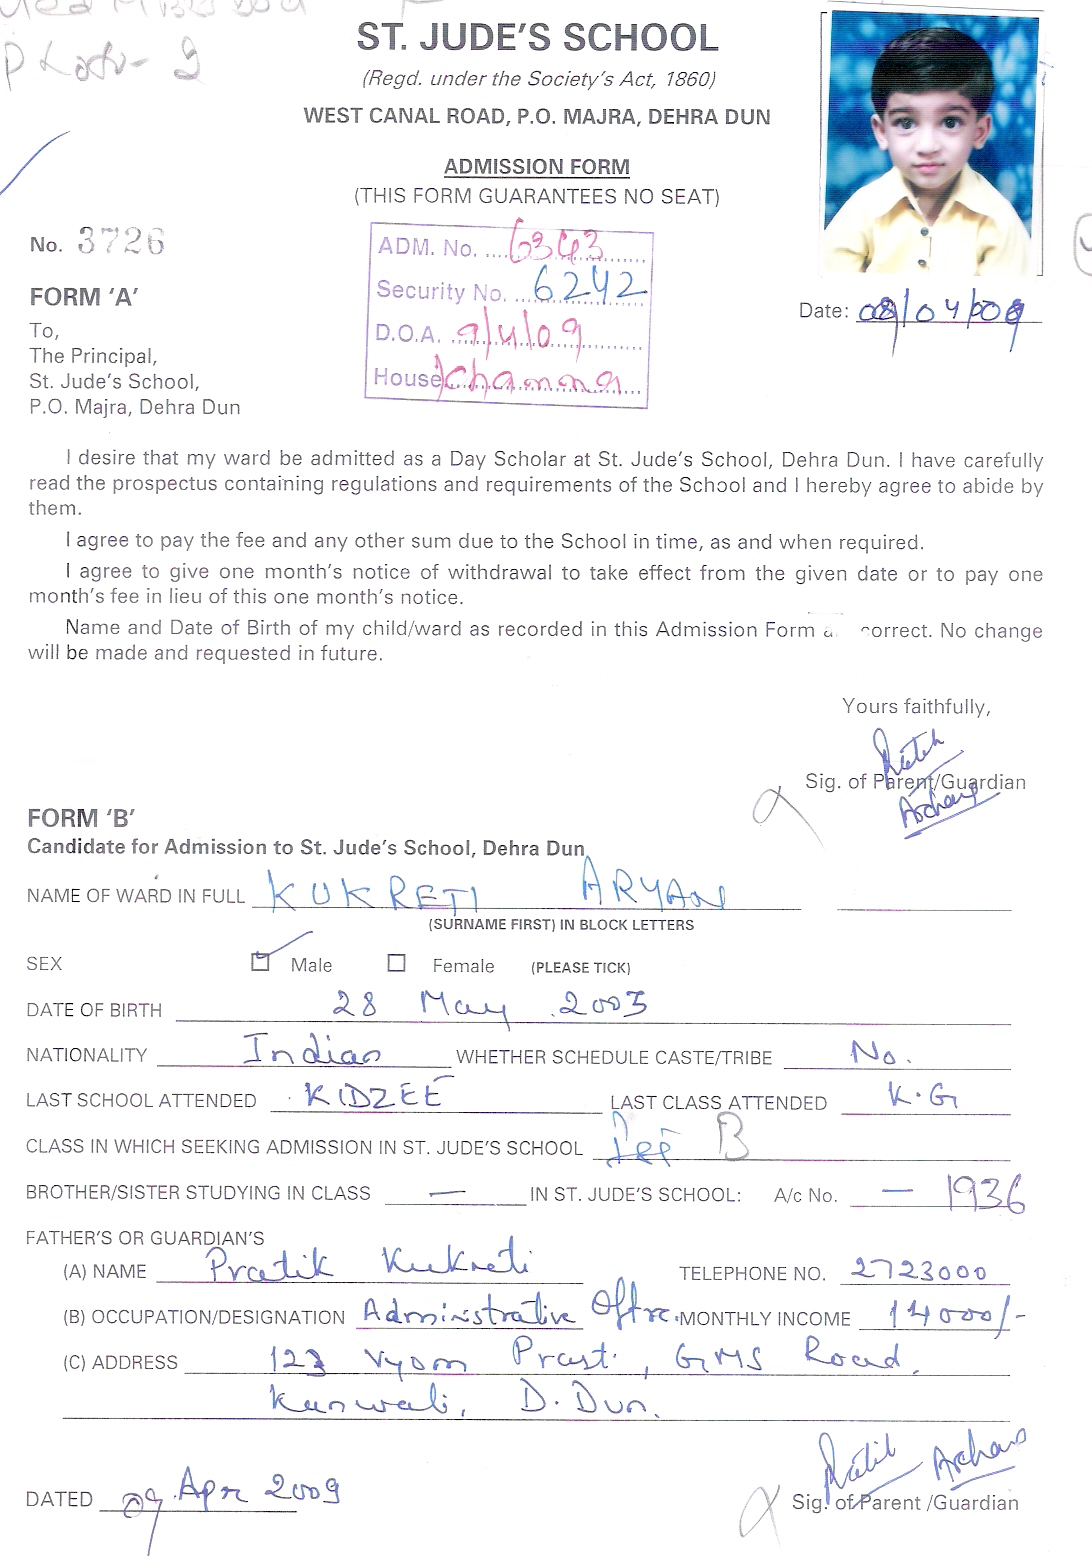 ST. JUDE'S SCHOOL
(Regd. under the Society's Act, 1860)
WEST CANAL ROAD, P.O. MAJRA, DEHRA DUN
ADMISSION FORM
(THIS FORM GUARANTEES NO SEAT)
No. 3726
ADM. No. 6343
Security No. 6242
D.O.A. 9/4/09
House
FORM 'A'
Date:
To,
The Principal,
St. Jude's School,
P.O. Majra, Dehra Dun
I desire that my ward be admitted as a Day Scholar at St. Jude's School, Dehra Dun. I have carefully
read the prospectus containing regulations and requirements of the School and I hereby agree to abide by
them.
I agree to pay the fee and any other sum due to the School in time, as and when required.
I agree to give one month's notice of withdrawal to take effect from the given date or to pay one
month's fee in lieu of this one month's notice.
Name and Date of Birth of my child/ward as recorded in this Admission Form correct. No change
will be made and requested in future.
Yours faithfully,
Sig. of Parent/Guardian
FORM 'B'
Candidate for Admission to St. Jude's School, Dehra Dun
NAME OF WARD IN FULL KUKRETI ARYAN
(SURNAME FIRST) IN BLOCK LETTERS
SEX Male Female (PLEASE TICK)
DATE OF BIRTH 28 May 2003
NATIONALITY Indian WHETHER SCHEDULE CASTE/TRIBE No.
LAST SCHOOL ATTENDED KIDZEE LAST CLASS ATTENDED K.G
CLASS IN WHICH SEEKING ADMISSION IN ST. JUDE'S SCHOOL B
BROTHER/SISTER STUDYING IN CLASS — IN ST. JUDE'S SCHOOL: A/c No. — 1936
FATHER'S OR GUARDIAN'S
(A) NAME Pratik Kukreti TELEPHONE NO. 2723000
(B) OCCUPATION/DESIGNATION Administrative MONTHLY INCOME 14000/-
(C) ADDRESS 123 Vyom Prast, GMS Road,
Kanwali, D. Dun.
DATED 09 Apr 2009
Sig. of Parent /Guardian